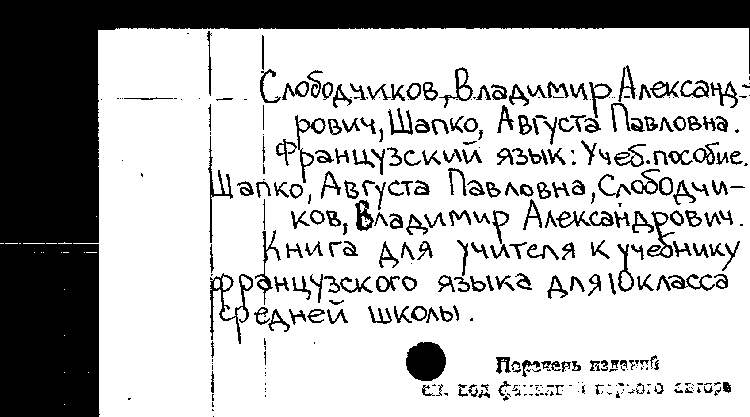 Слободчиков, Владимир Александ-
рович, Шапко, Августа Павловна.
Французский язык: Учеб. пособие.
Шапко, Августа Павловна, Слободчи-
ков, Владимир Александрович.
Книга для учителя к учебнику
французского языка для 10 класса
средней школы.
Перечень изданий
см. под фамилией первого автора